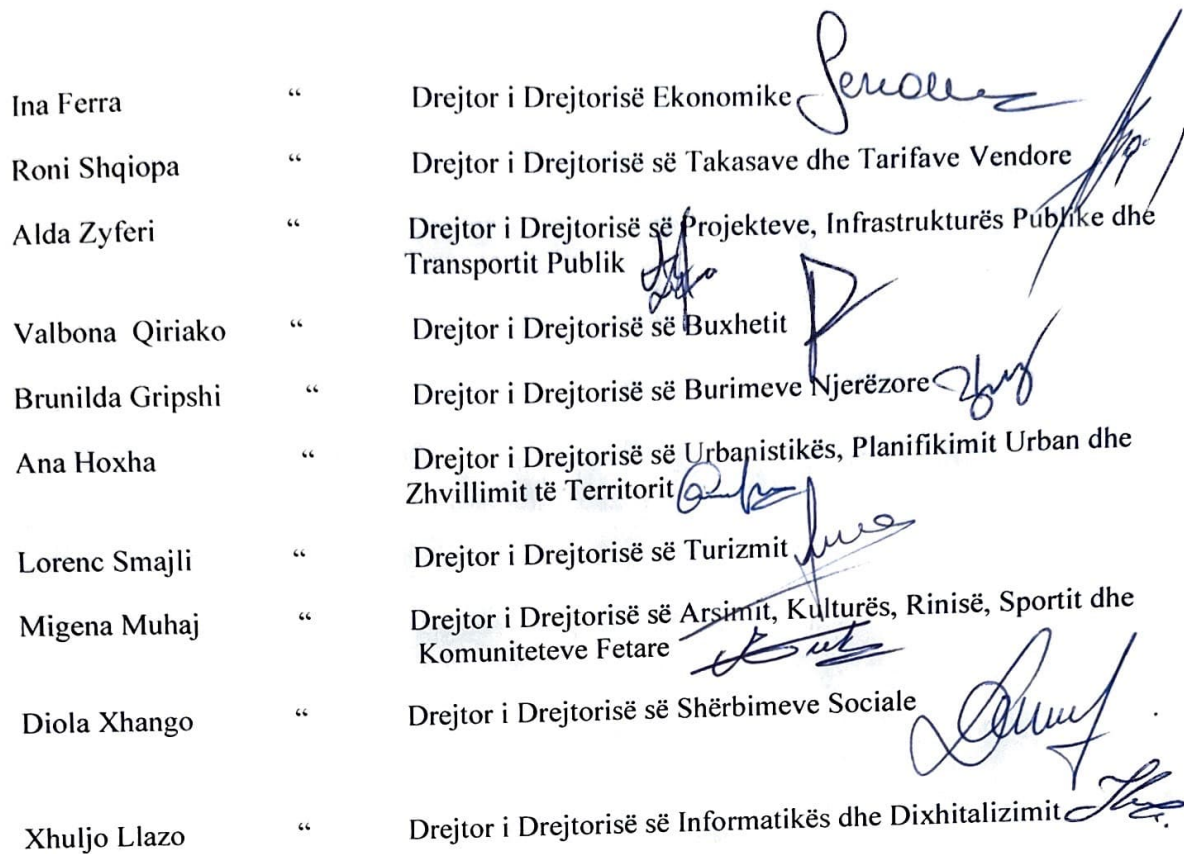 Ina Ferra “ Drejtor i Drejtorisë Ekonomike
Roni Shqiopa “ Drejtor i Drejtorisë së Takasave dhe Tarifave Vendore
Alda Zyferi “ Drejtor i Drejtorisë së Projekteve, Infrastrukturës Publike dhe
Transportit Publik
Valbona Qiriako “ Drejtor i Drejtorisë së Buxhetit
Brunilda Gripshi “ Drejtor i Drejtorisë së Burimeve Njerëzore
Ana Hoxha “ Drejtor i Drejtorisë së Urbanistikës, Planifikimit Urban dhe
Zhvillimit të Territorit
Lorenc Smajli “ Drejtor i Drejtorisë së Turizmit
Migena Muhaj “ Drejtor i Drejtorisë së Arsimit, Kulturës, Rinisë, Sportit dhe
Komuniteteve Fetare
Diola Xhango “ Drejtor i Drejtorisë së Shërbimeve Sociale
Xhuljo Llazo “ Drejtor i Drejtorisë së Informatikës dhe Dixhitalizimit